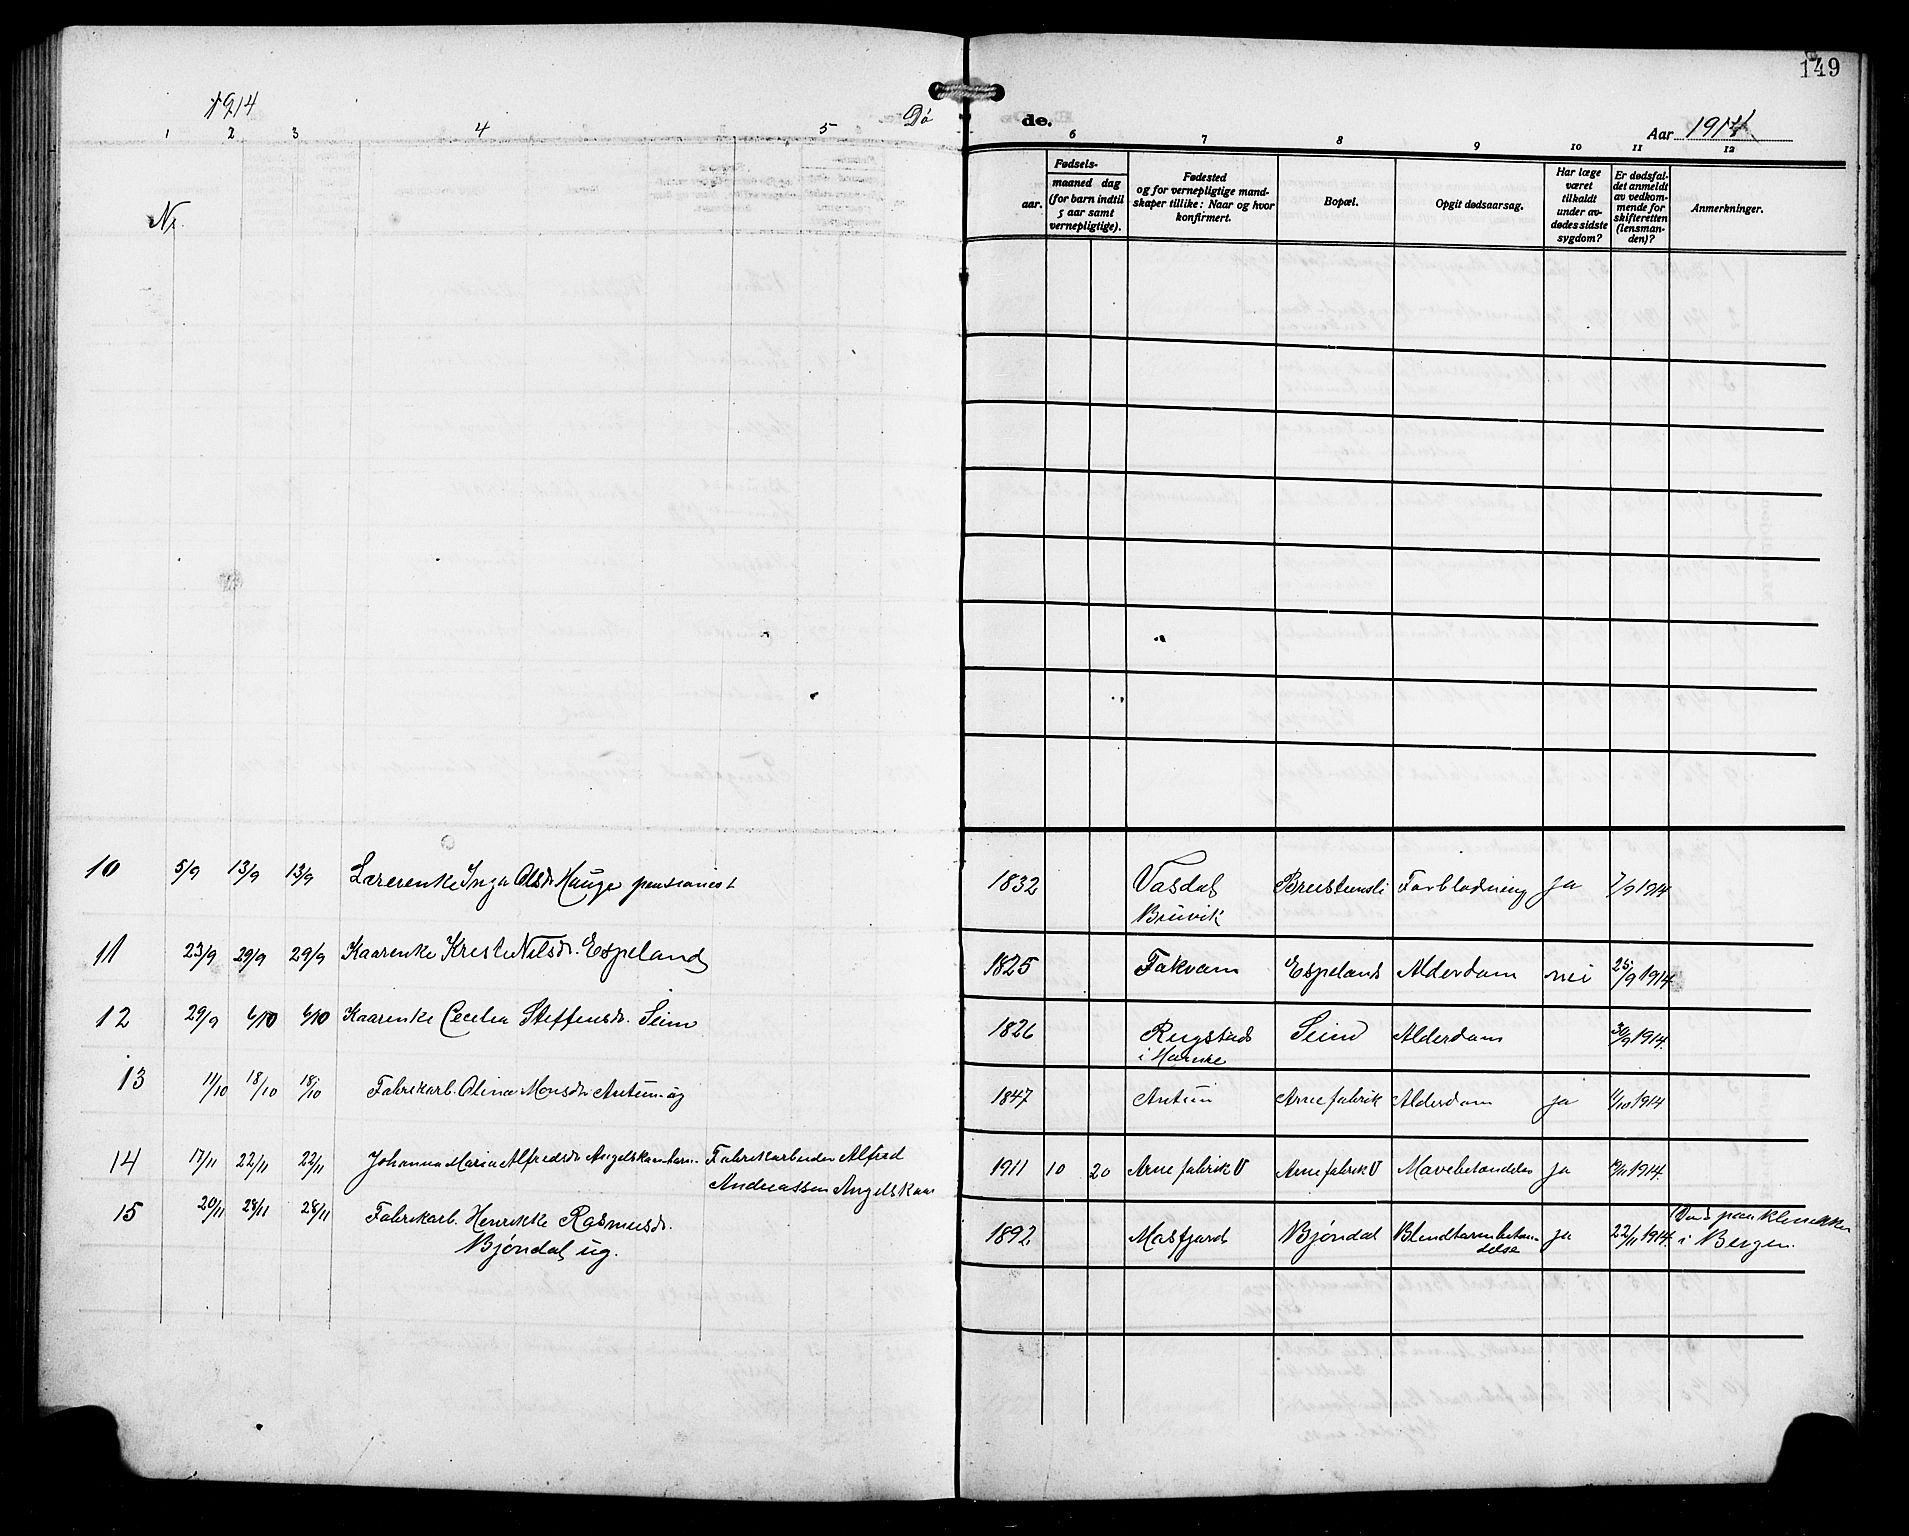 149
1914
Dø de.
Aar 1914
1 2 3 4 5 6 7 8 9 10 11 12
Nr.
aar.
Fødsels-
maaned dag
(for barn indtil
5 aar samt
vernepligtige).
Fødested
og for vernepligtige mand-
skaper tillike: Naar og hvor
konfirmert.
Bopæl.
Opgit dødsaarsag.
Har læge
været
tilkaldt
under av-
dødes sidste
sygdom?
Er dødsfal-
det anmeldt
av vedkom-
mende for
skifteretten
(lensman-
den)?
Anmerkninger.
10 5/9 13/9 13/9 Lærerenke Inga Olsdr. Hauge pensionist 1832 Vasdal Forblødning ja 7/9 1914
Bruvik
11 23/9 29/9 29/9 Kaarenke Kristi Nilsdr. Espeland 1825 Takvam Espeland Alderdom nei 25/9 1914
12 29/9 6/10 6/10 Kaarenke Cecilia Steffensdr. Seim 1826 Seim Alderdom 30/9 1914.
i Hamre
13 11/10 18/10 18/10 Fabrikarb. Olina Monsdr. Antun ug 1847 Antun Arne fabrik Alderdom ja 1914
14 17/11 22/11 22/11 Johanna Maria Alfredsdr. Angelskaar Fabrikarbeider Alfred 1911 10 20 Arne fabrik Arne fabrik ja 1914.
Andreassen Angelskaar
15 20/11 28/11 28/11 Fabrikarb. Henrikke Rasmusdr. 1892 Masfjord Bjøndal Blindtarmbetæn- ja 22/11 1914.
Bjøndal ug. delse
i Bergen.